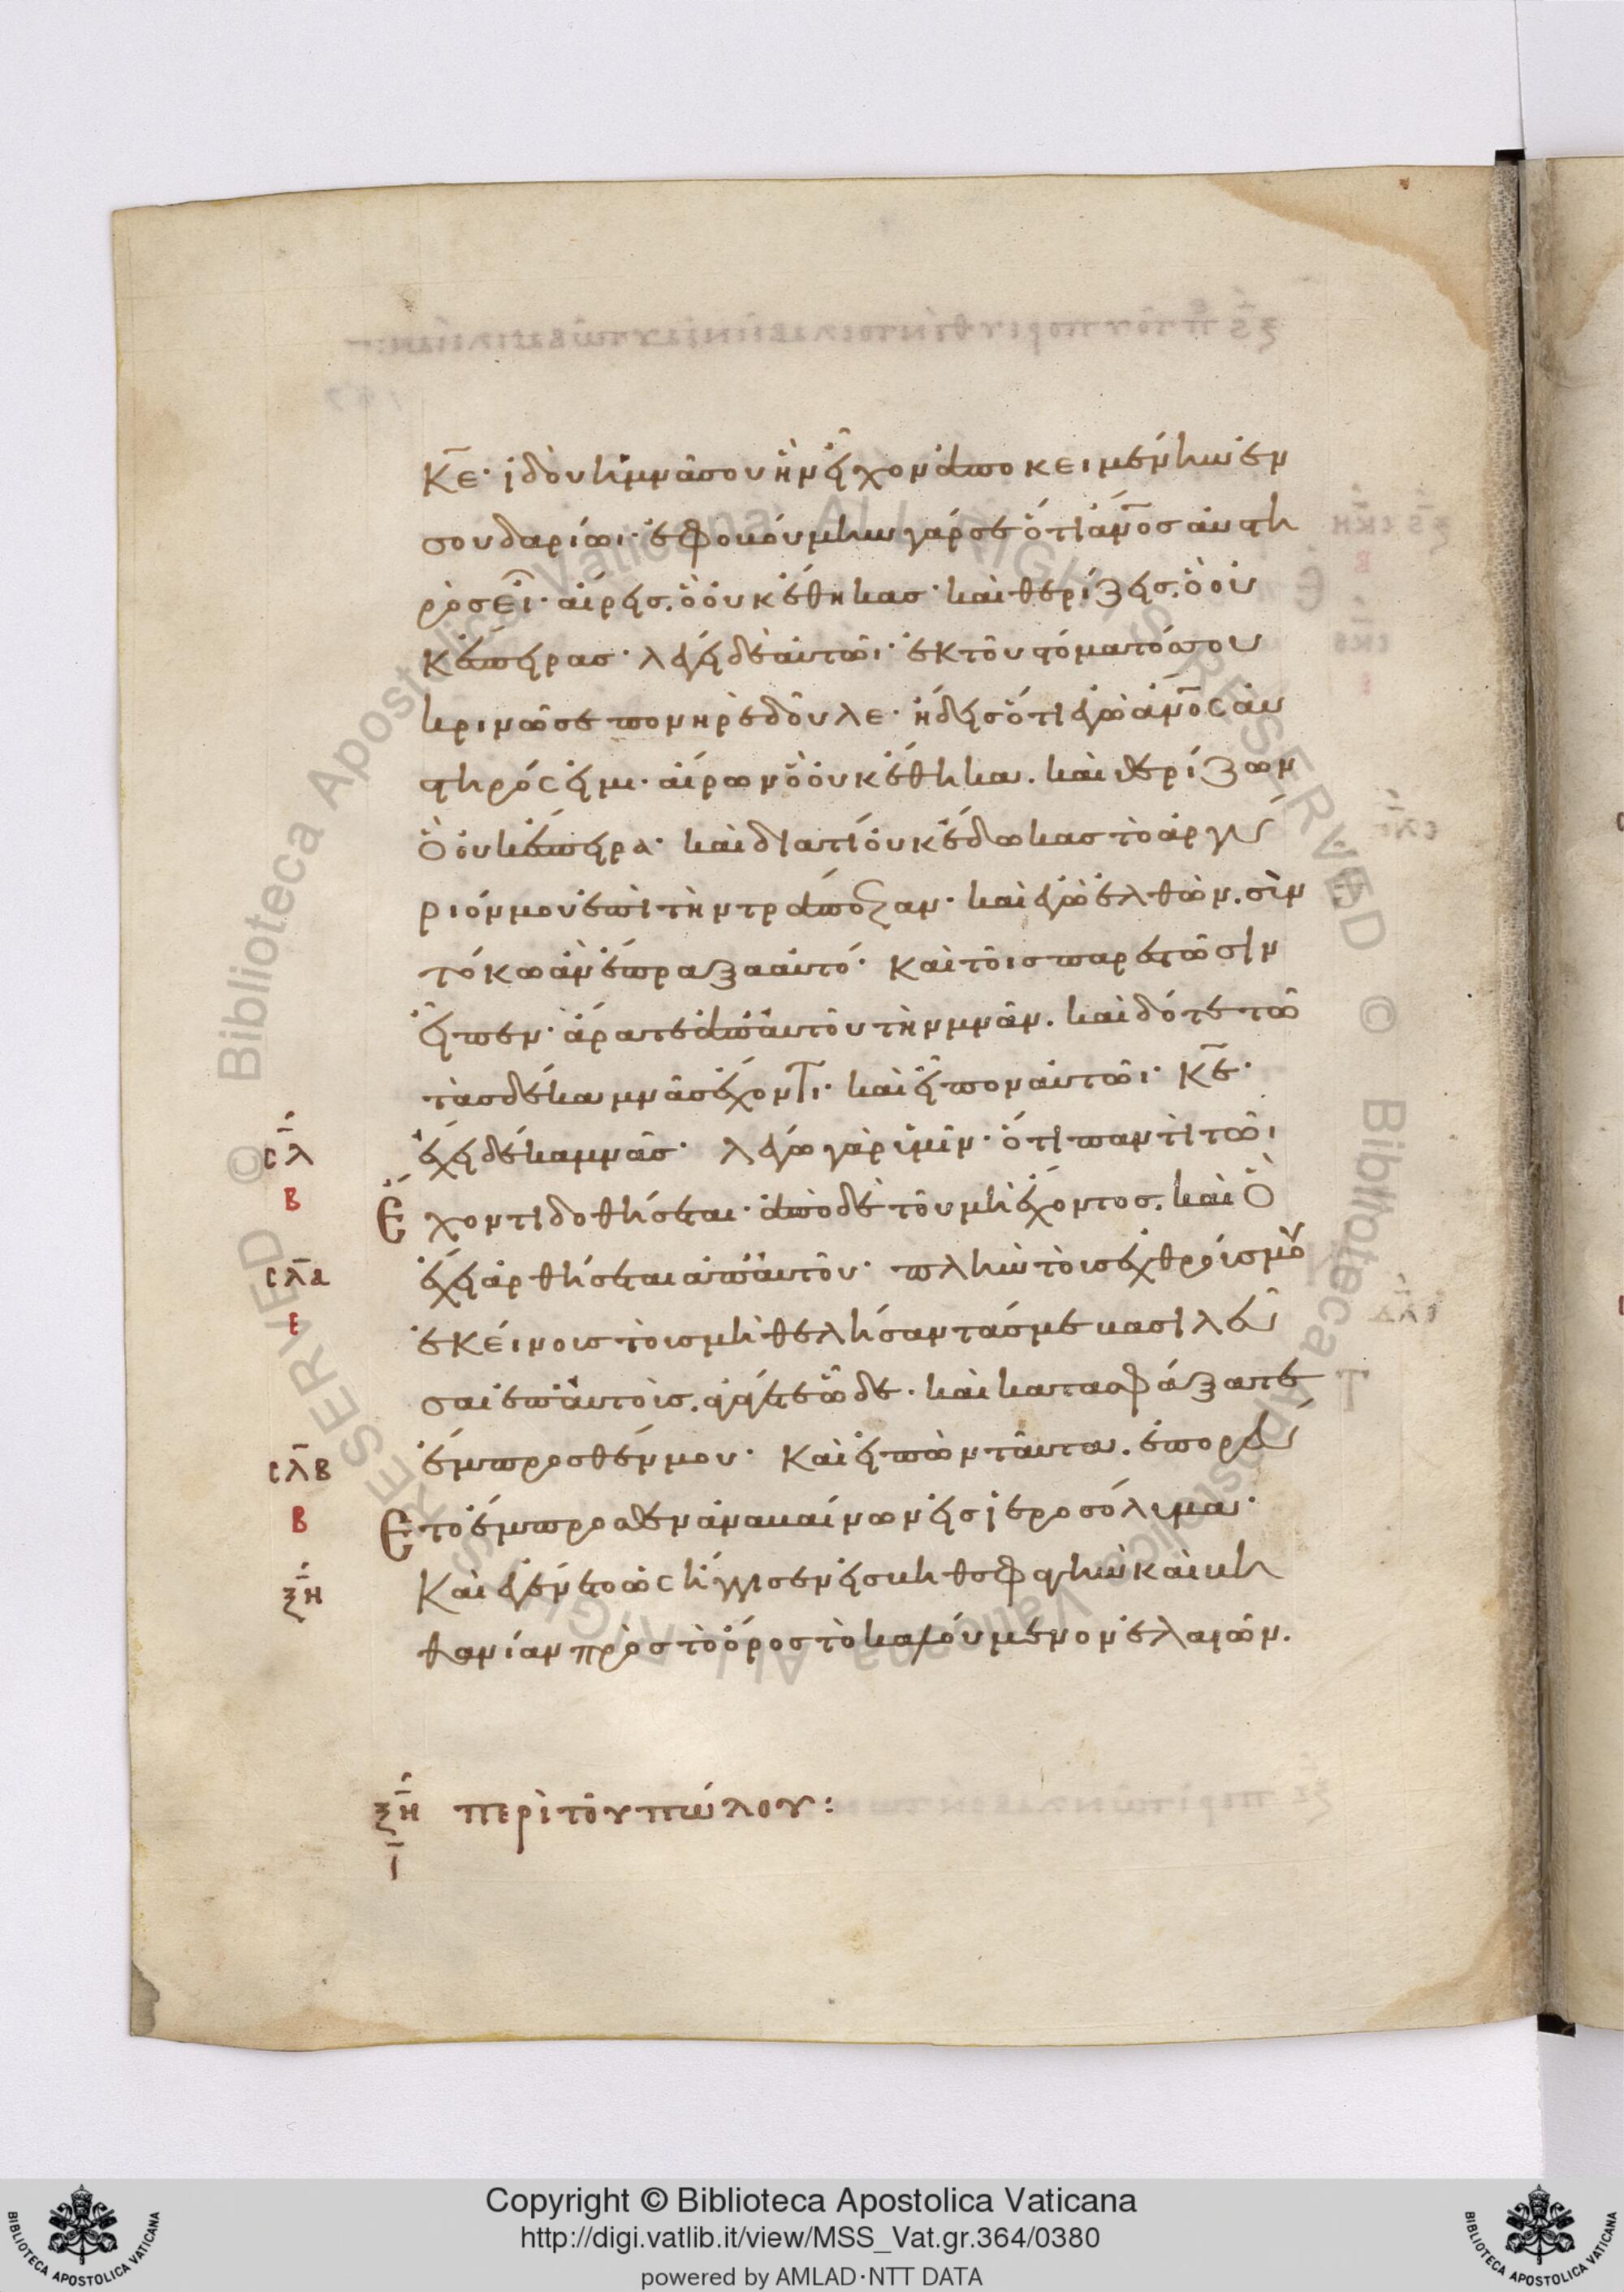 κ̅ε̅· ἰδοὺ ἡ μνᾶ σου ἣν εἶχον ἀποκειμένην ἐν
σουδαρίωι· ἐφοβούμην γάρ σε ὅτι ἄν̅ο̅σ αὐστη
ρὸσ εἶ· αἴρεισ. ὃ οὐκ ἔθηκασ· καὶ θερίζεισ. ὃ οὐ
κ ἔσπειρασ· λέγει δὲ αὐτῶι· ἐκ τοῦ στόματόσ σου
κρινῶ σε πονηρὲ δοῦλε· ἤδεισ ὅτι ἐγὼ ἄν̅ο̅σ αὐ
στηρόσ εἰμι· αἴρων ὃ οὐκ ἔθηκα. καὶ θερίζων
ὃ οὐκ ἔσπειρα· καὶ διατί οὐκ ἔδωκασ τὸ ἀργύ
ριόν μου ἐπὶ τὴν τράπεζαν· καὶ ἐγὼ ἐλθὼν. σὺν
τόκω ἂν ἔπραξα αὐτό· καὶ τοῖσ παρεστῶσιν
εἶπεν· ἄρατε ἀπ' αὐτοῦ τὴν μνᾶν. καὶ δότε τῶ
τὰσ δέκα μνᾶσ ἔχοντι· καὶ εἶπον αὐτῶι· κ̅ε̅·
σ̅λ̅ ἔχει δέκα μνᾶσ· λέγω γὰρ ὑμῖν· ὅτι παντὶ τῶι
β Ἔχοντι δοθήσεται· ἀπὸ δὲ τοῦ μὴ ἔχοντοσ. καὶ ὃ
σ̅λ̅α̅ ἔχει ἀρθήσεται ἀπ' αὐτοῦ· πλὴν τοὺσ ἐχθρούσ μου
ε ἐκείνουσ τοὺσ μὴ θελήσαντάσ με βασιλεῦ
σαι ἐπ' αὐτούσ. ἀγάγετε ὧδε· καὶ κατασφάξατε
σ̅λ̅β̅ ἔμπροσθέν μου· καὶ εἰπὼν ταῦτα. ἐπορεύ
β Ετο ἔμπροσθεν ἀναβαίνων εἰσ ἱεροσόλυμα·
ξ̅η̅ Καὶ ἐγένετο ὡσ ἤγγισεν εἰσ βηθσφαγὴν καὶ βη
θανίαν πρὸσ τὸ ὄροσ τὸ καλούμενον ἐλαιῶν.
ξ̅η̅ περὶ τοῦ πώλου:
ι̅
Copyright © Biblioteca Apostolica Vaticana
http://digi.vatlib.it/view/MSS_Vat.gr.364/0380
powered by AMLAD·NTT DATA